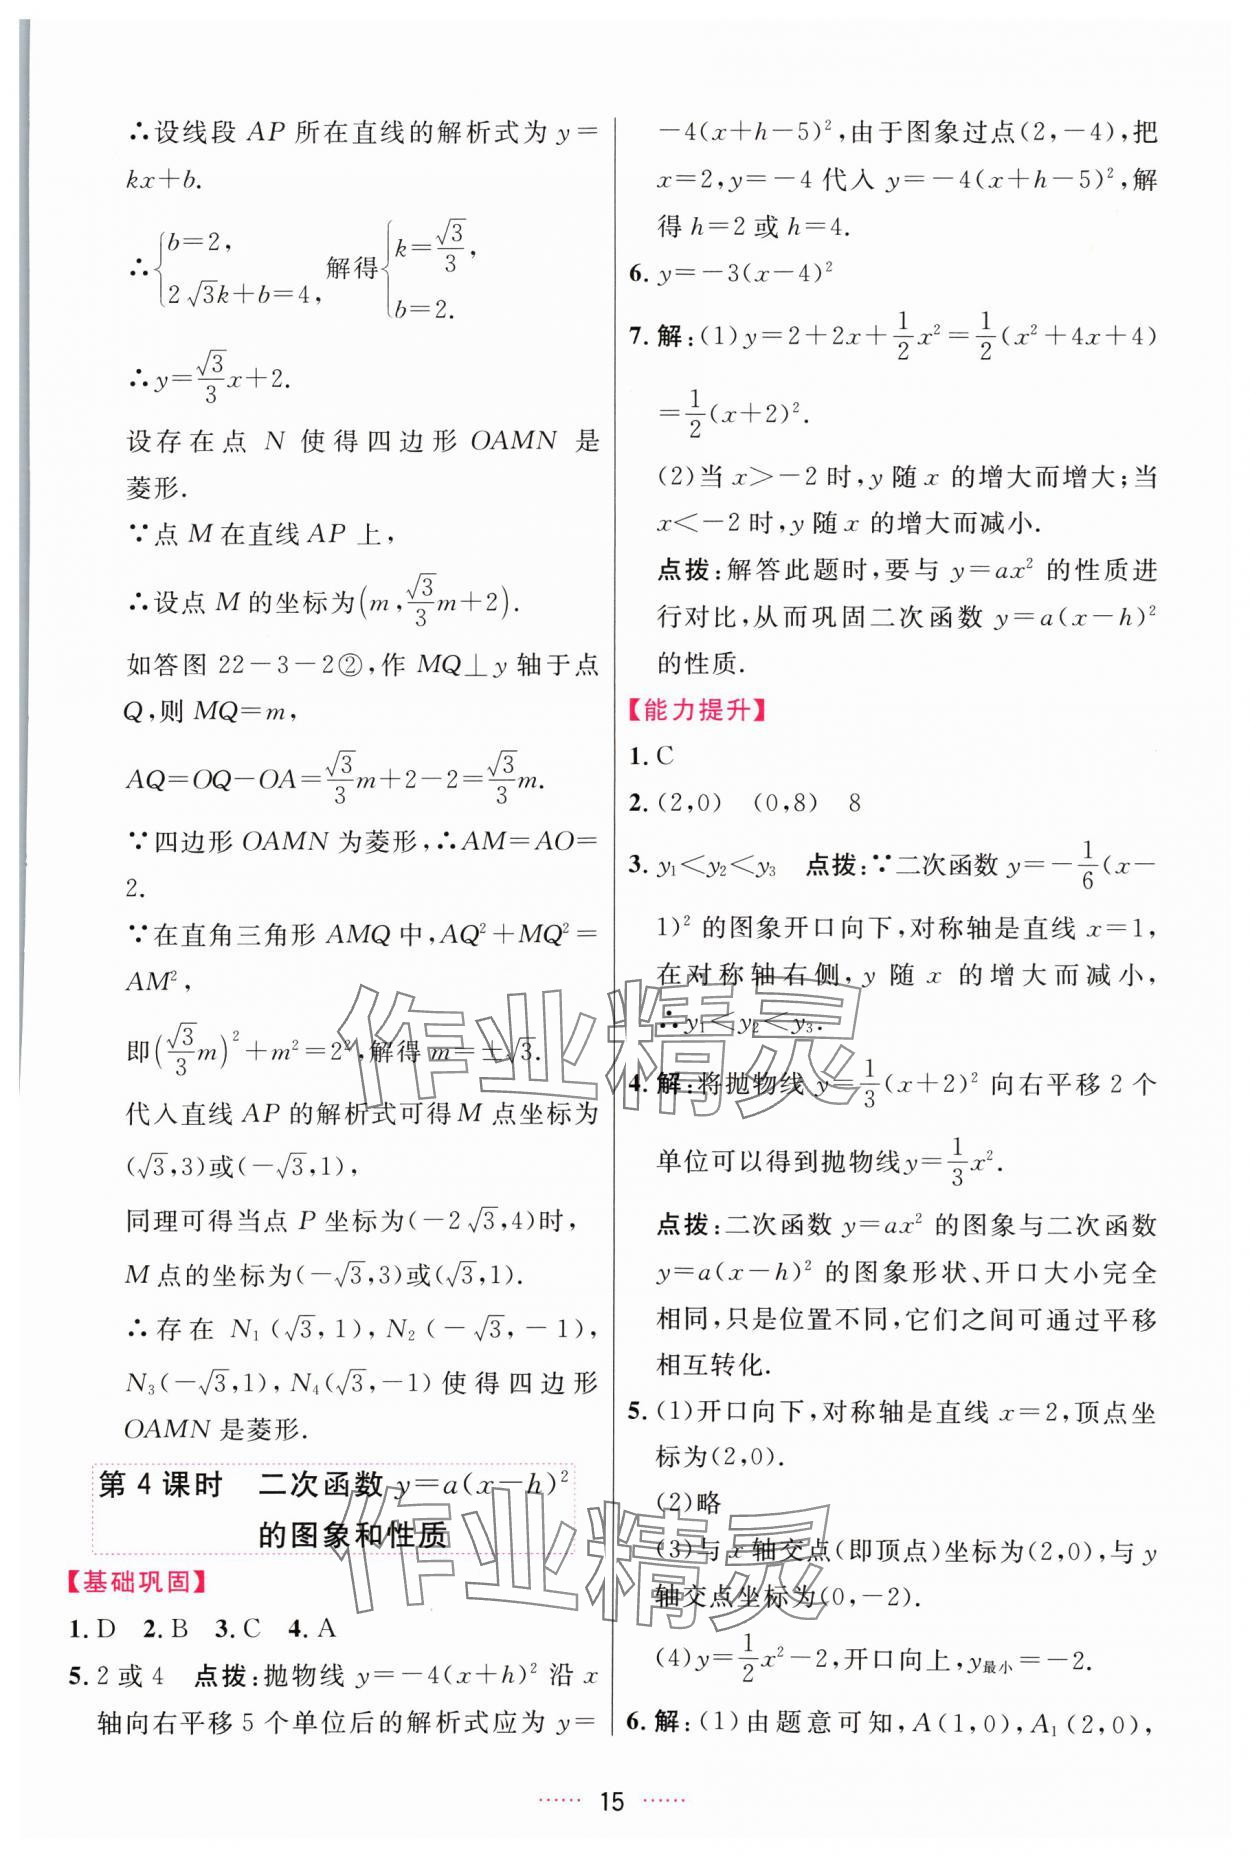 ∴设线段 AP 所在直线的解析式为 y=
kx+b.
∴{b=2, 2√3k+b=4, 解得{k=√3/3, b=2.
∴y=√3/3x+2.
设存在点 N 使得四边形 OAMN 是
菱形.
∵点 M 在直线 AP 上,
∴设点 M 的坐标为(m,√3/3m+2).
如答图 22-3-2②,作 MQ⊥y 轴于点
Q,则 MQ=m,
AQ=OQ-OA=√3/3m+2-2=√3/3m.
∵四边形 OAMN 为菱形,∴AM=AO=
2.
∵在直角三角形 AMQ 中,AQ²+MQ²=
AM²,
即(√3/3m)²+m²=2²,解得 m=±√3.
代入直线 AP 的解析式可得 M 点坐标为
(√3,3)或(-√3,1),
同理可得当点 P 坐标为(-2√3,4)时,
M 点的坐标为(-√3,3)或(√3,1).
∴存在 N₁(√3,1),N₂(-√3,-1),
N₃(-√3,1),N₄(√3,-1)使得四边形
OAMN 是菱形.
第 4 课时 二次函数 y=a(x-h)²
的图象和性质
【基础巩固】
1. D 2. B 3. C 4. A
5. 2 或 4 点拨:抛物线 y=-4(x+h)² 沿 x
轴向右平移 5 个单位后的解析式应为 y=
-4(x+h-5)²,由于图象过点(2,-4),把
x=2,y=-4 代入 y=-4(x+h-5)²,解
得 h=2 或 h=4.
6. y=-3(x-4)²
7. 解:(1)y=2+2x+1/2x²=1/2(x²+4x+4)
=1/2(x+2)².
(2)当 x>-2 时,y 随 x 的增大而增大;当
x<-2 时,y 随 x 的增大而减小.
点拨:解答此题时,要与 y=ax² 的性质进
行对比,从而巩固二次函数 y=a(x-h)²
的性质.
【能力提升】
1. C
2. (2,0) (0,8) 8
3. y₁<y₂<y₃ 点拨:∵二次函数 y=-1/6(x-
1)² 的图象开口向下,对称轴是直线 x=1,
在对称轴右侧,y 随 x 的增大而减小,
∴y₁<y₂<y₃.
4. 解:将抛物线 y=1/3(x+2)² 向右平移 2 个
单位可以得到抛物线y=1/3x².
点拨:二次函数 y=ax² 的图象与二次函数
y=a(x-h)² 的图象形状、开口大小完全
相同,只是位置不同,它们之间可通过平移
相互转化.
5. (1)开口向下,对称轴是直线 x=2,顶点坐
标为(2,0).
(2)略
(3)与 x 轴交点(即顶点)坐标为(2,0),与 y
轴交点坐标为(0,-2).
(4)y=1/2x²-2,开口向上,y最小=-2.
6. 解:(1)由题意可知,A(1,0),A₁(2,0),
作业精灵
作业精灵
15